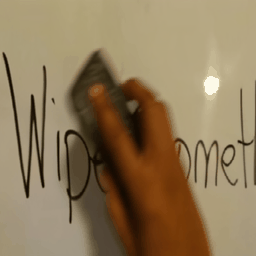 Wipe ometh